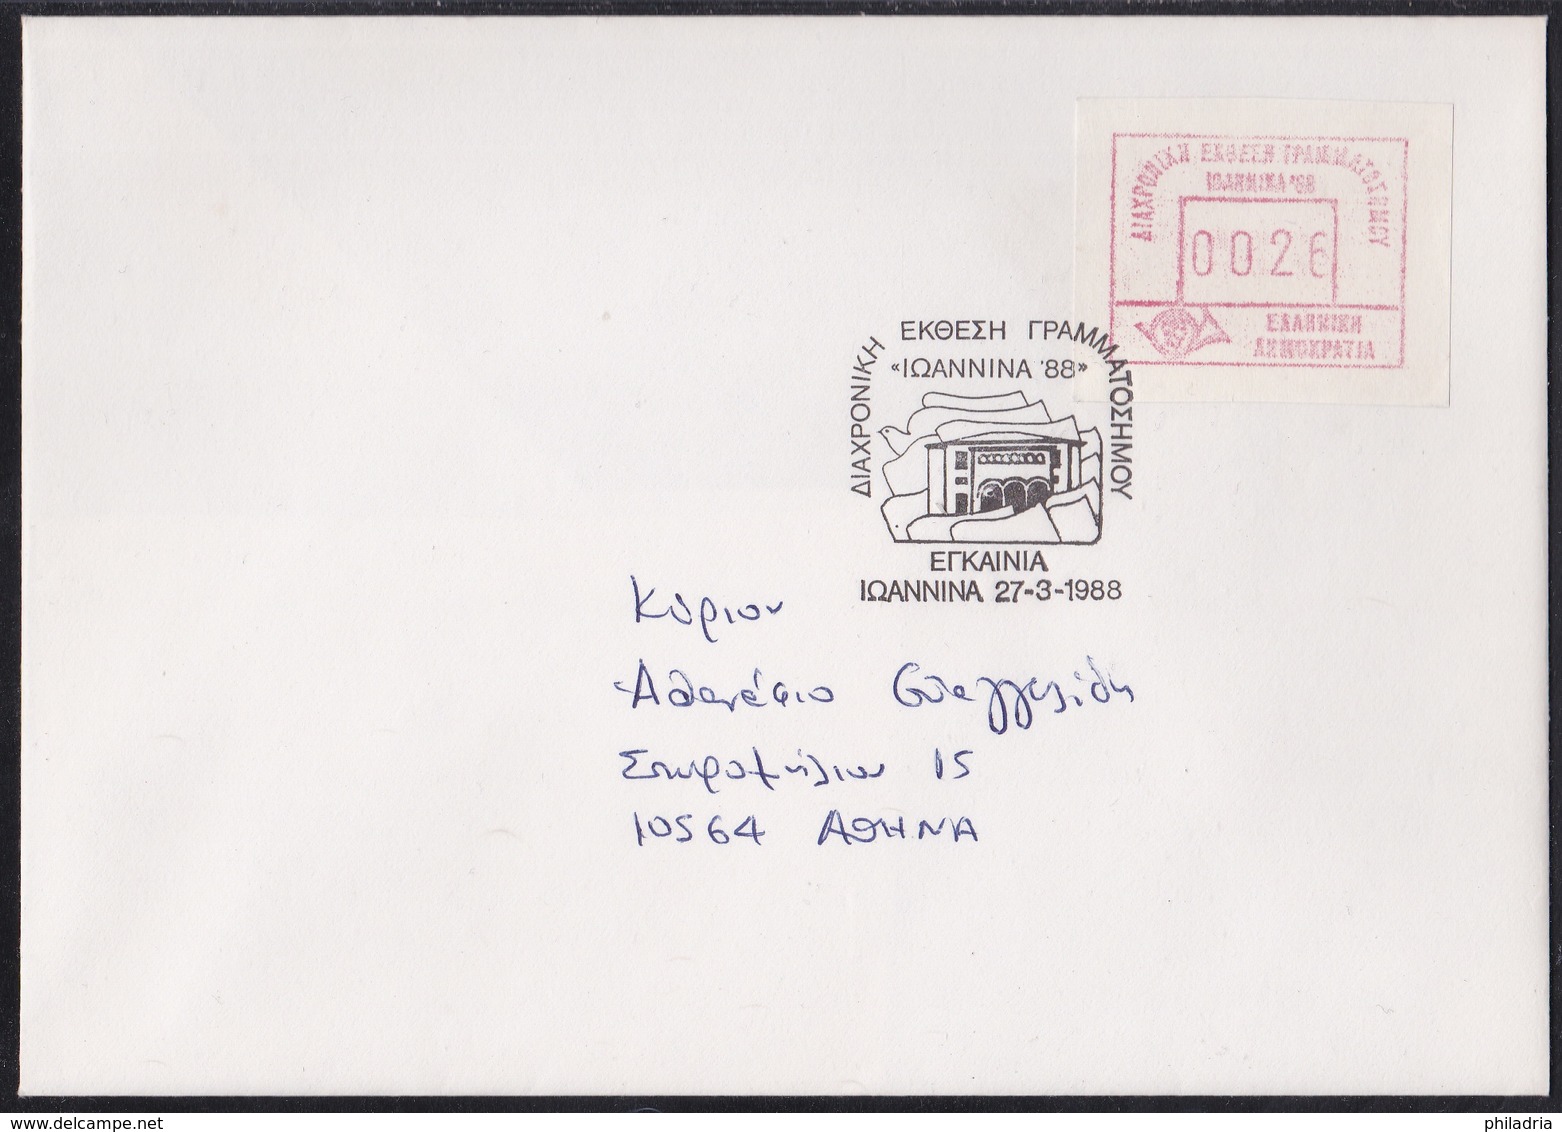 ΔΙΑΧΡΟΝΙΚΗ ΕΚΘΕΣΗ ΓΡΑΜΜΑΤΟΣΗΜΟΥ
ΙΩΑΝΝΙΝΑ '88
0026
ΕΛΛΗΝΙΚΗ
ΔΗΜΟΚΡΑΤΙΑ
ΔΙΑΧΡΟΝΙΚΗ ΕΚΘΕΣΗ ΓΡΑΜΜΑΤΟΣΗΜΟΥ
«ΙΩΑΝΝΙΝΑ '88»
ΕΓΚΑΙΝΙΑ
ΙΩΑΝΝΙΝΑ 27-3-1988
Κύριον
Αθανάσιο Ευαγγελίδη
Σπυρομήλιου 15
10564 ΑΘΗΝΑ
delcampe.net
philadria